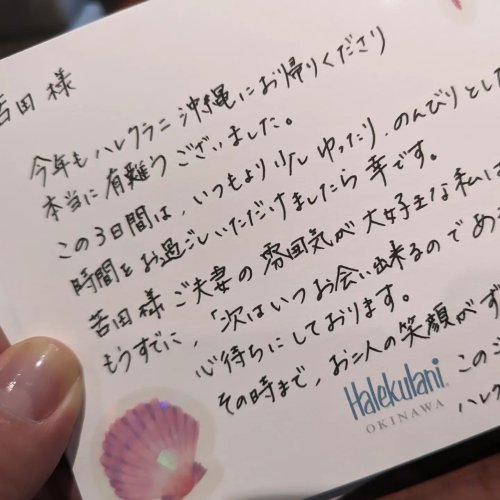 苫田 様
今年も ハレクラニ 沖縄にお帰りくださり
本当に 有難うございました。
この3日間は、いつもより少し ゆったり、のんびりとした
時間を お過ごしいただけましたら 幸です。
苫田様 ご夫妻の 雰囲気が 大好きな 私は
もうすでに、「次は いつ お会い出来るので
心待ちにしております。
その時まで、お二人の 笑顔が
Halekulani
OKINAWA
この
ハレク